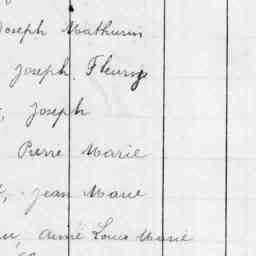 Joseph Mathurin
Joseph Fleury
, Joseph
Pierre Marie
, Jean Marie
, Aimé Louis Marie